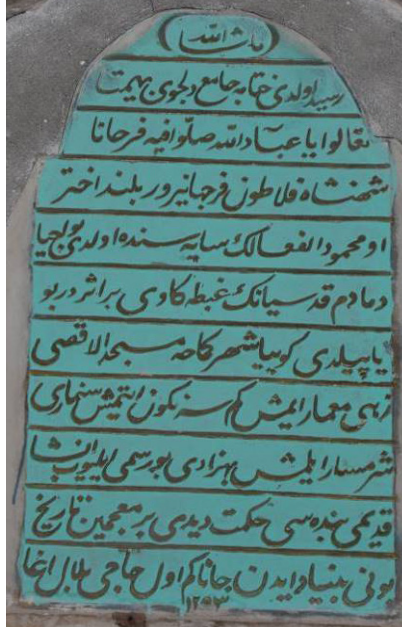 ما شاء الله
رسيد اولدى ختامه جامع دلجوى بهمت
تعالوا يا عباد الله صلوا فيه فرحانا
شهنشاه فلاطون فر جهانپرور بلند اختر
او محمود الفعالك سايه سنده اولدى بو احيا
دمادم قدسيانك غبطه كاوى بر اثردر بو
ياپيلدى كوييا شهركاحه مسجد الاقصى
زهى معمار ايمش كم سنكون ايتمش سنمارى
شرمسار ايلمش بهزادى بو رسمى ايليوب انشا
قديمى بنده سى حكمت ديدى بر معجمين تاريخ
بونى بنياد ايدن جانا كم اول حاجى بلال اغا
١٢٥٣